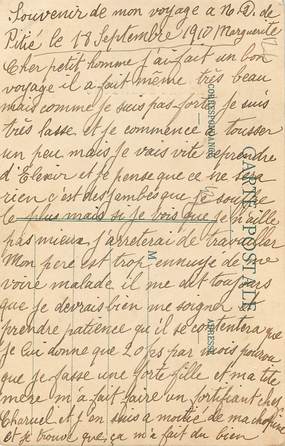 Souvenir de mon voyage a N. D. de
Pitié le 18 Septembre 1910 Marguerite
Cher petit homme j'ai fait un bon
voyage il a fait même très beau
mais comme je suis pas forte je suis
très lasse et je commence a tousser
un peu mais je vais vite reprendre
d'Elexir et je pense que ce ne sera
rien c'est des jambes que je souffre
le plus mais si je vois que je n'aille
pas mieux j'arreterai de travailler
Mon pere est trop ennuyé de me
voire malade il me dit toujours
que je devrais bien me soigner
prendre patience qu il se contentera que
je lui donne que 20 frs par mois pourvu
que je fasse une forte fille et ma tite
mere m'a fait faire un fortifiant chez
Charuel et j'en suis a moitié de ma chopine
et je trouve que ça m'a fait du bien
CARTE POSTALE
CORRESPONDANCE
M